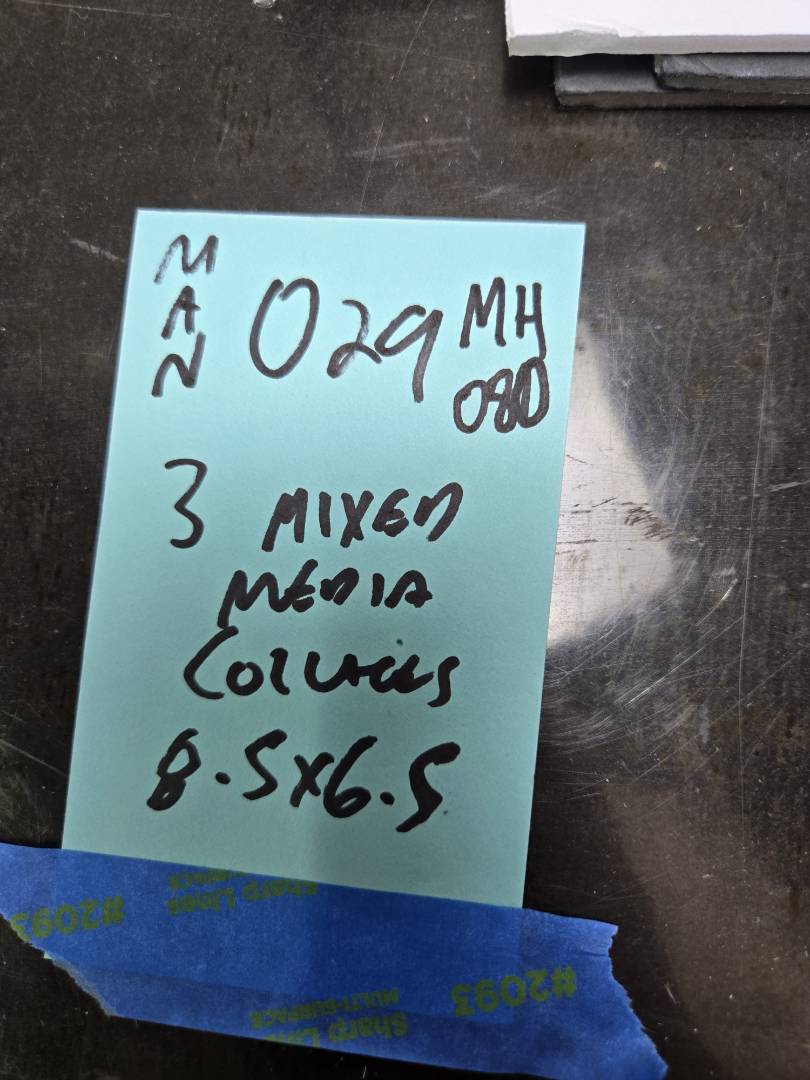 MAN 029 MH
08D
3 MIXED
MEDIA
8.5x6.5
#2093 Sharp Lines
MULTI-SURFACE
Sharp Lines
MULTI-SURFACE #2093